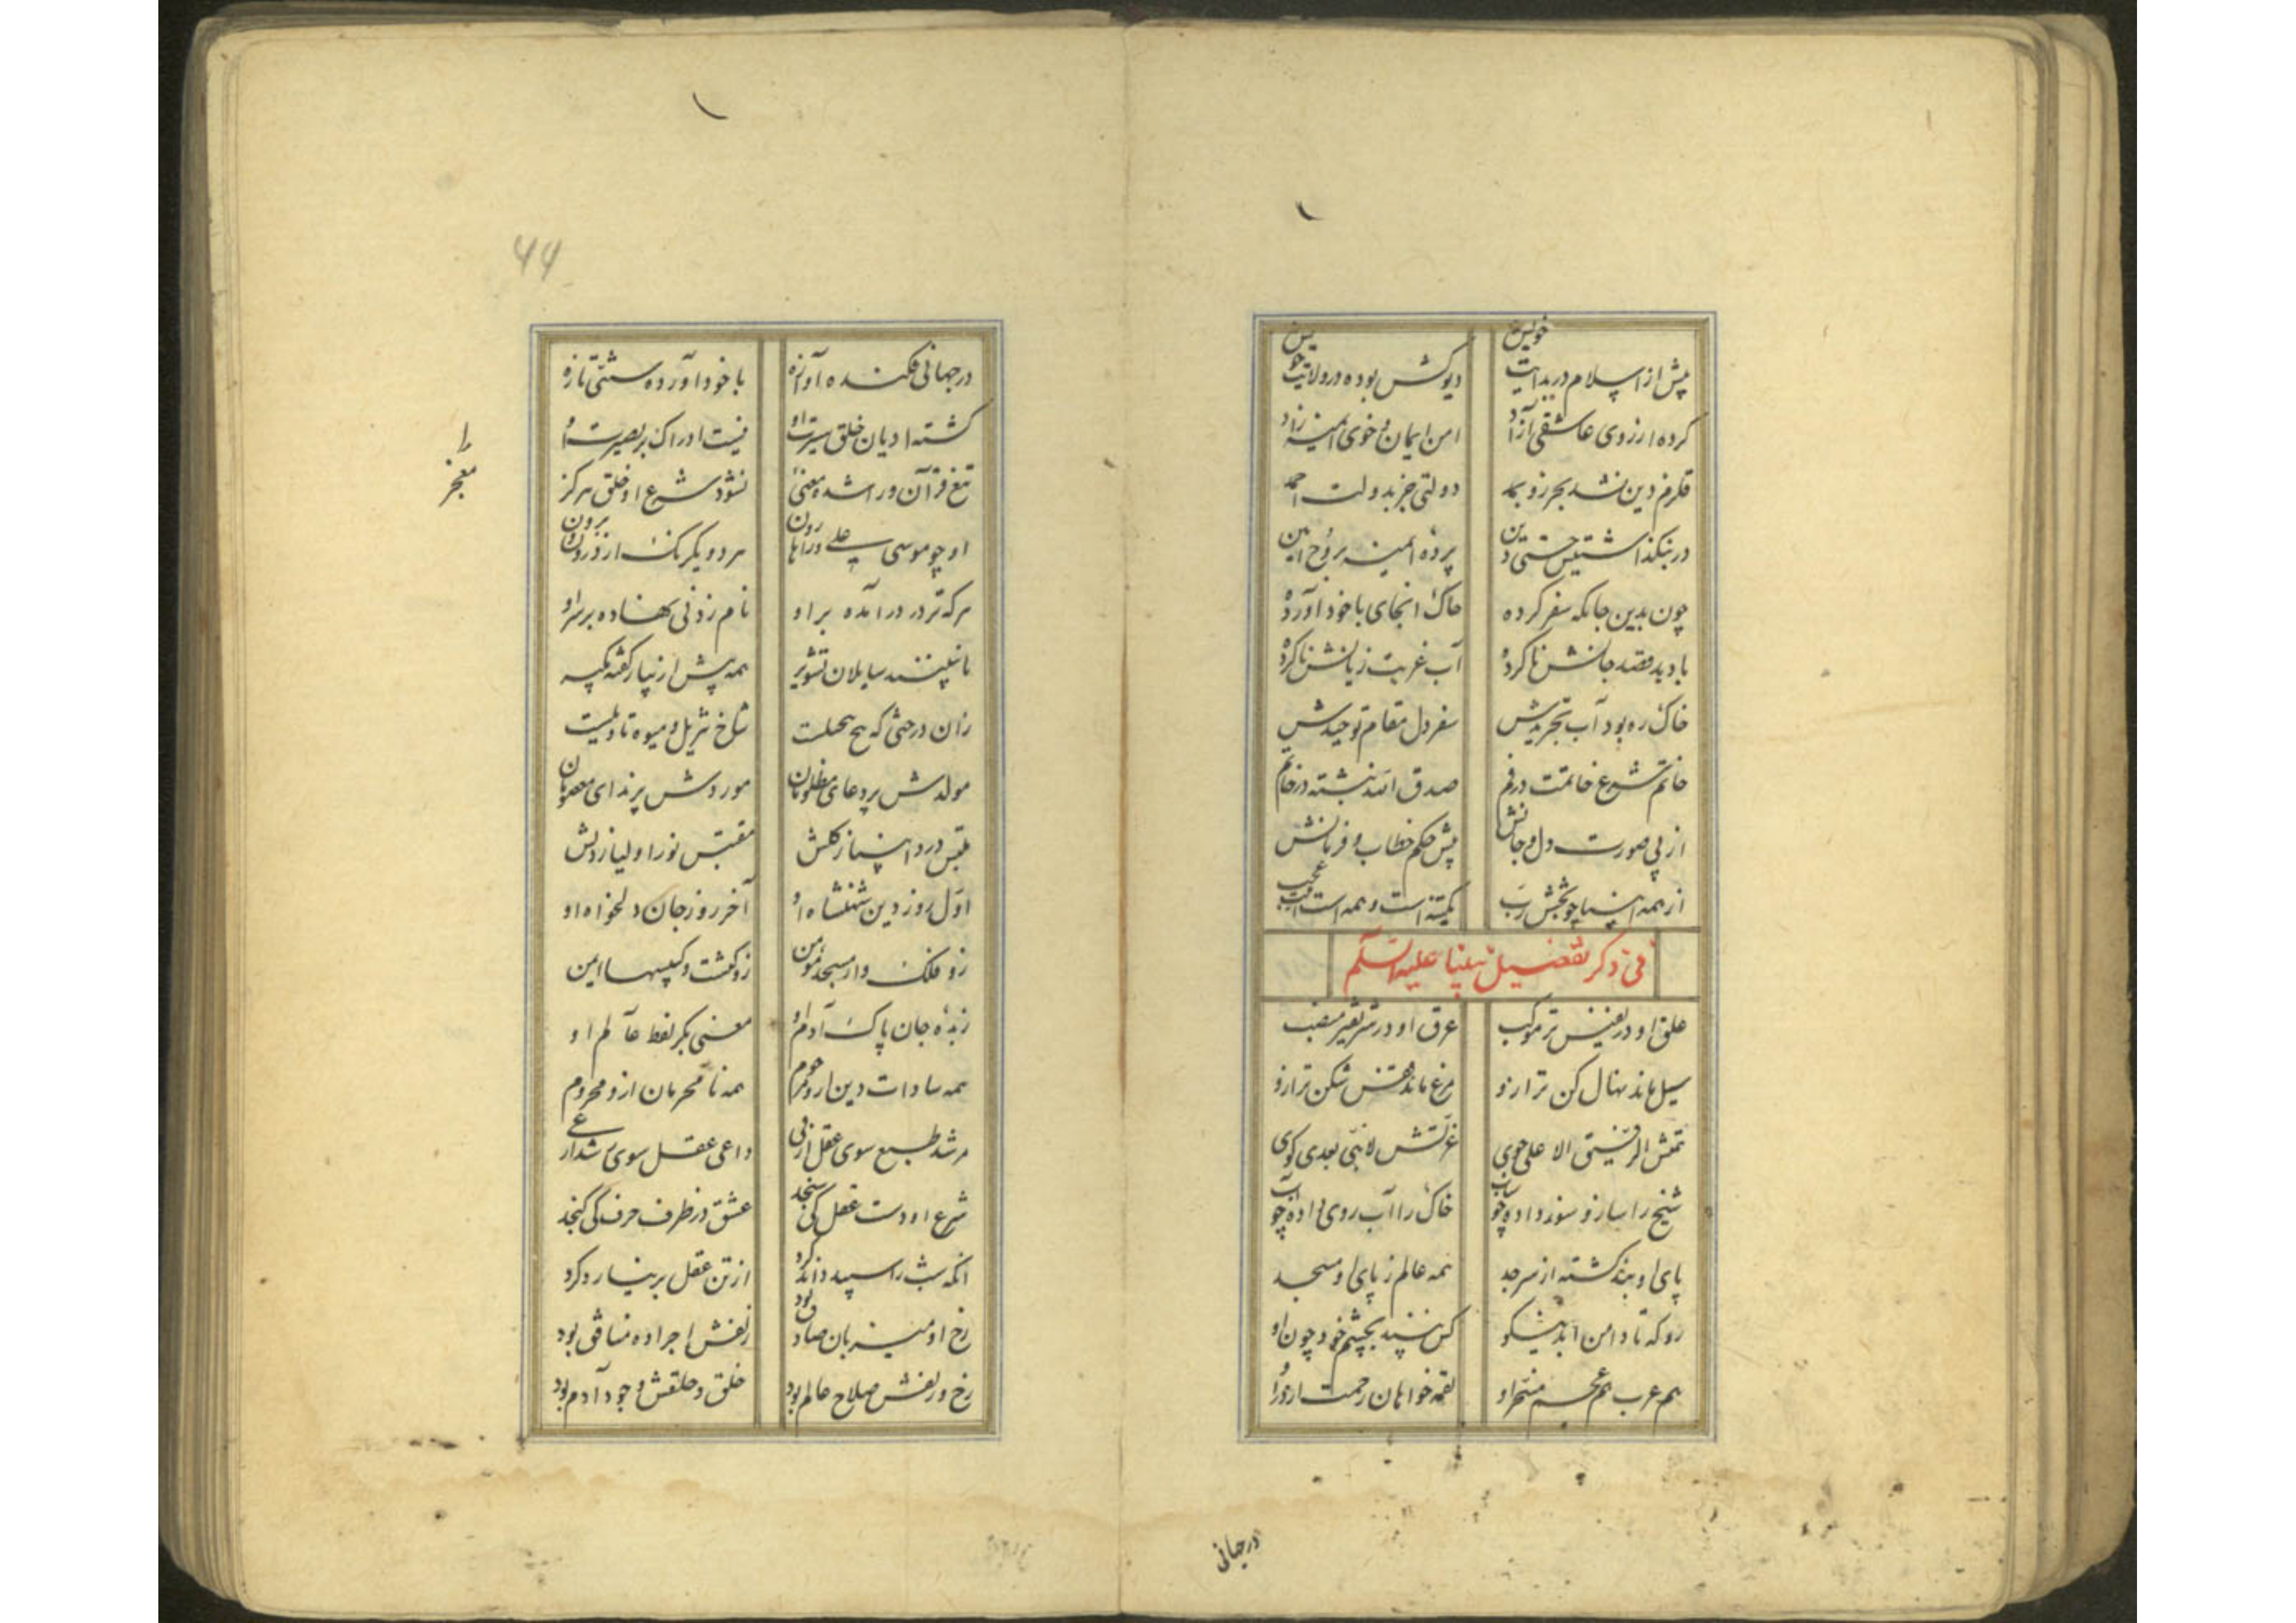 پیش از اسلام در بدایت خویش    دیو کش بوده در ولایت خویش
کرده ارزوی عاشقی آزاد    امن ایمان و خوی امینه زاد
دولتی جز بدولت احمد
در بنکذاشتیش جستی دین    پرده امینه بروح امین
چون بدین جایکه سفر کرده    خاک انجای با خود آورده
با دید مقصد جانش نا کرده    آب غربت زیانش نا کرده
خاک ره بود آب تجریدش    سفر دل مقام توحیدش
خاتم شرع خاتمت در فم    صدق الله نبشته در خاتم
از پی صورت دل و جانش    پیش حکم خطاب و فرمانش
از همه انبیا چو بخش رب    کمینه است و همه است اینت عجب
فی ذکر تفضیل نبینا علیه السلم
خلق او در نفیس تر موکب    عرق او در شریفتر منصب
سیل ماند نهال کن ترازو    مرغ ماند قفس شکن ترازو
تنش الرفیق الا علی جوی    عزتش لا نبی بعدی کوی
شیخ را سازو سوز داده چو شاب    خاک را آب روی داده چو آب
پای او بند کشته از سر جد    همه عالم ز پای او مسجد
رو که تا دامن ابد نیکو    کس نبیند بچشم خود چون او
هم عرب هم عجم مسخر او    لقمه خواهان رحمت از در او
درجهانی
درجهانی فکنده آوازه    با خود آورده سنتی تازه
کشته ادیان خلق سیرت او    نیست ادراک بر بصیرت او
تیغ قرآن ورا شده معنی    نشود شرع او خلق هرکز
را معجز
او چو موسی علی ورا هارون    هر دو یکرنک از درون و برون
هر که تر در درآمده بر او    نام زدنی نهاده بر سر او
تا نبینند سایلان تشویر    همه پیش از نیاز کفته بکیر
زان درختی که بیخ مهملت    شاخ تنزیل و میوه تاویلست
مولدش بر دعای مظلومان    موردش بر ندای معصومان
ملتبس درد انبیا ز کلش    مقتبس نور اولیا ز دلش
اول روز دین شهنشاه او    آخر روز جان دلخواه او
زو فلک وار مسجد مؤمن    زو کنشت و کلیسها ایمن
زبده جان پاک آدم او    معنی بکر لفظ عالم او
همه سادات دین ازو مرحوم    همه نا محرمان ازو محروم
مرشد طبع سوی عقل از نی    داعی عقل سوی شد از عی
شرع او دست عقل کی سنجد    عشق در ظرف حرف کی کنجد
انکه شب را سپید داند کرد    از تن عقل بر نیارد کرد
رخ او میزبان صادق بود    زلفش اجراده منافق بود
رخ و زلفش صلاح عالم بود    خلق و خلقش وجود آدم بود